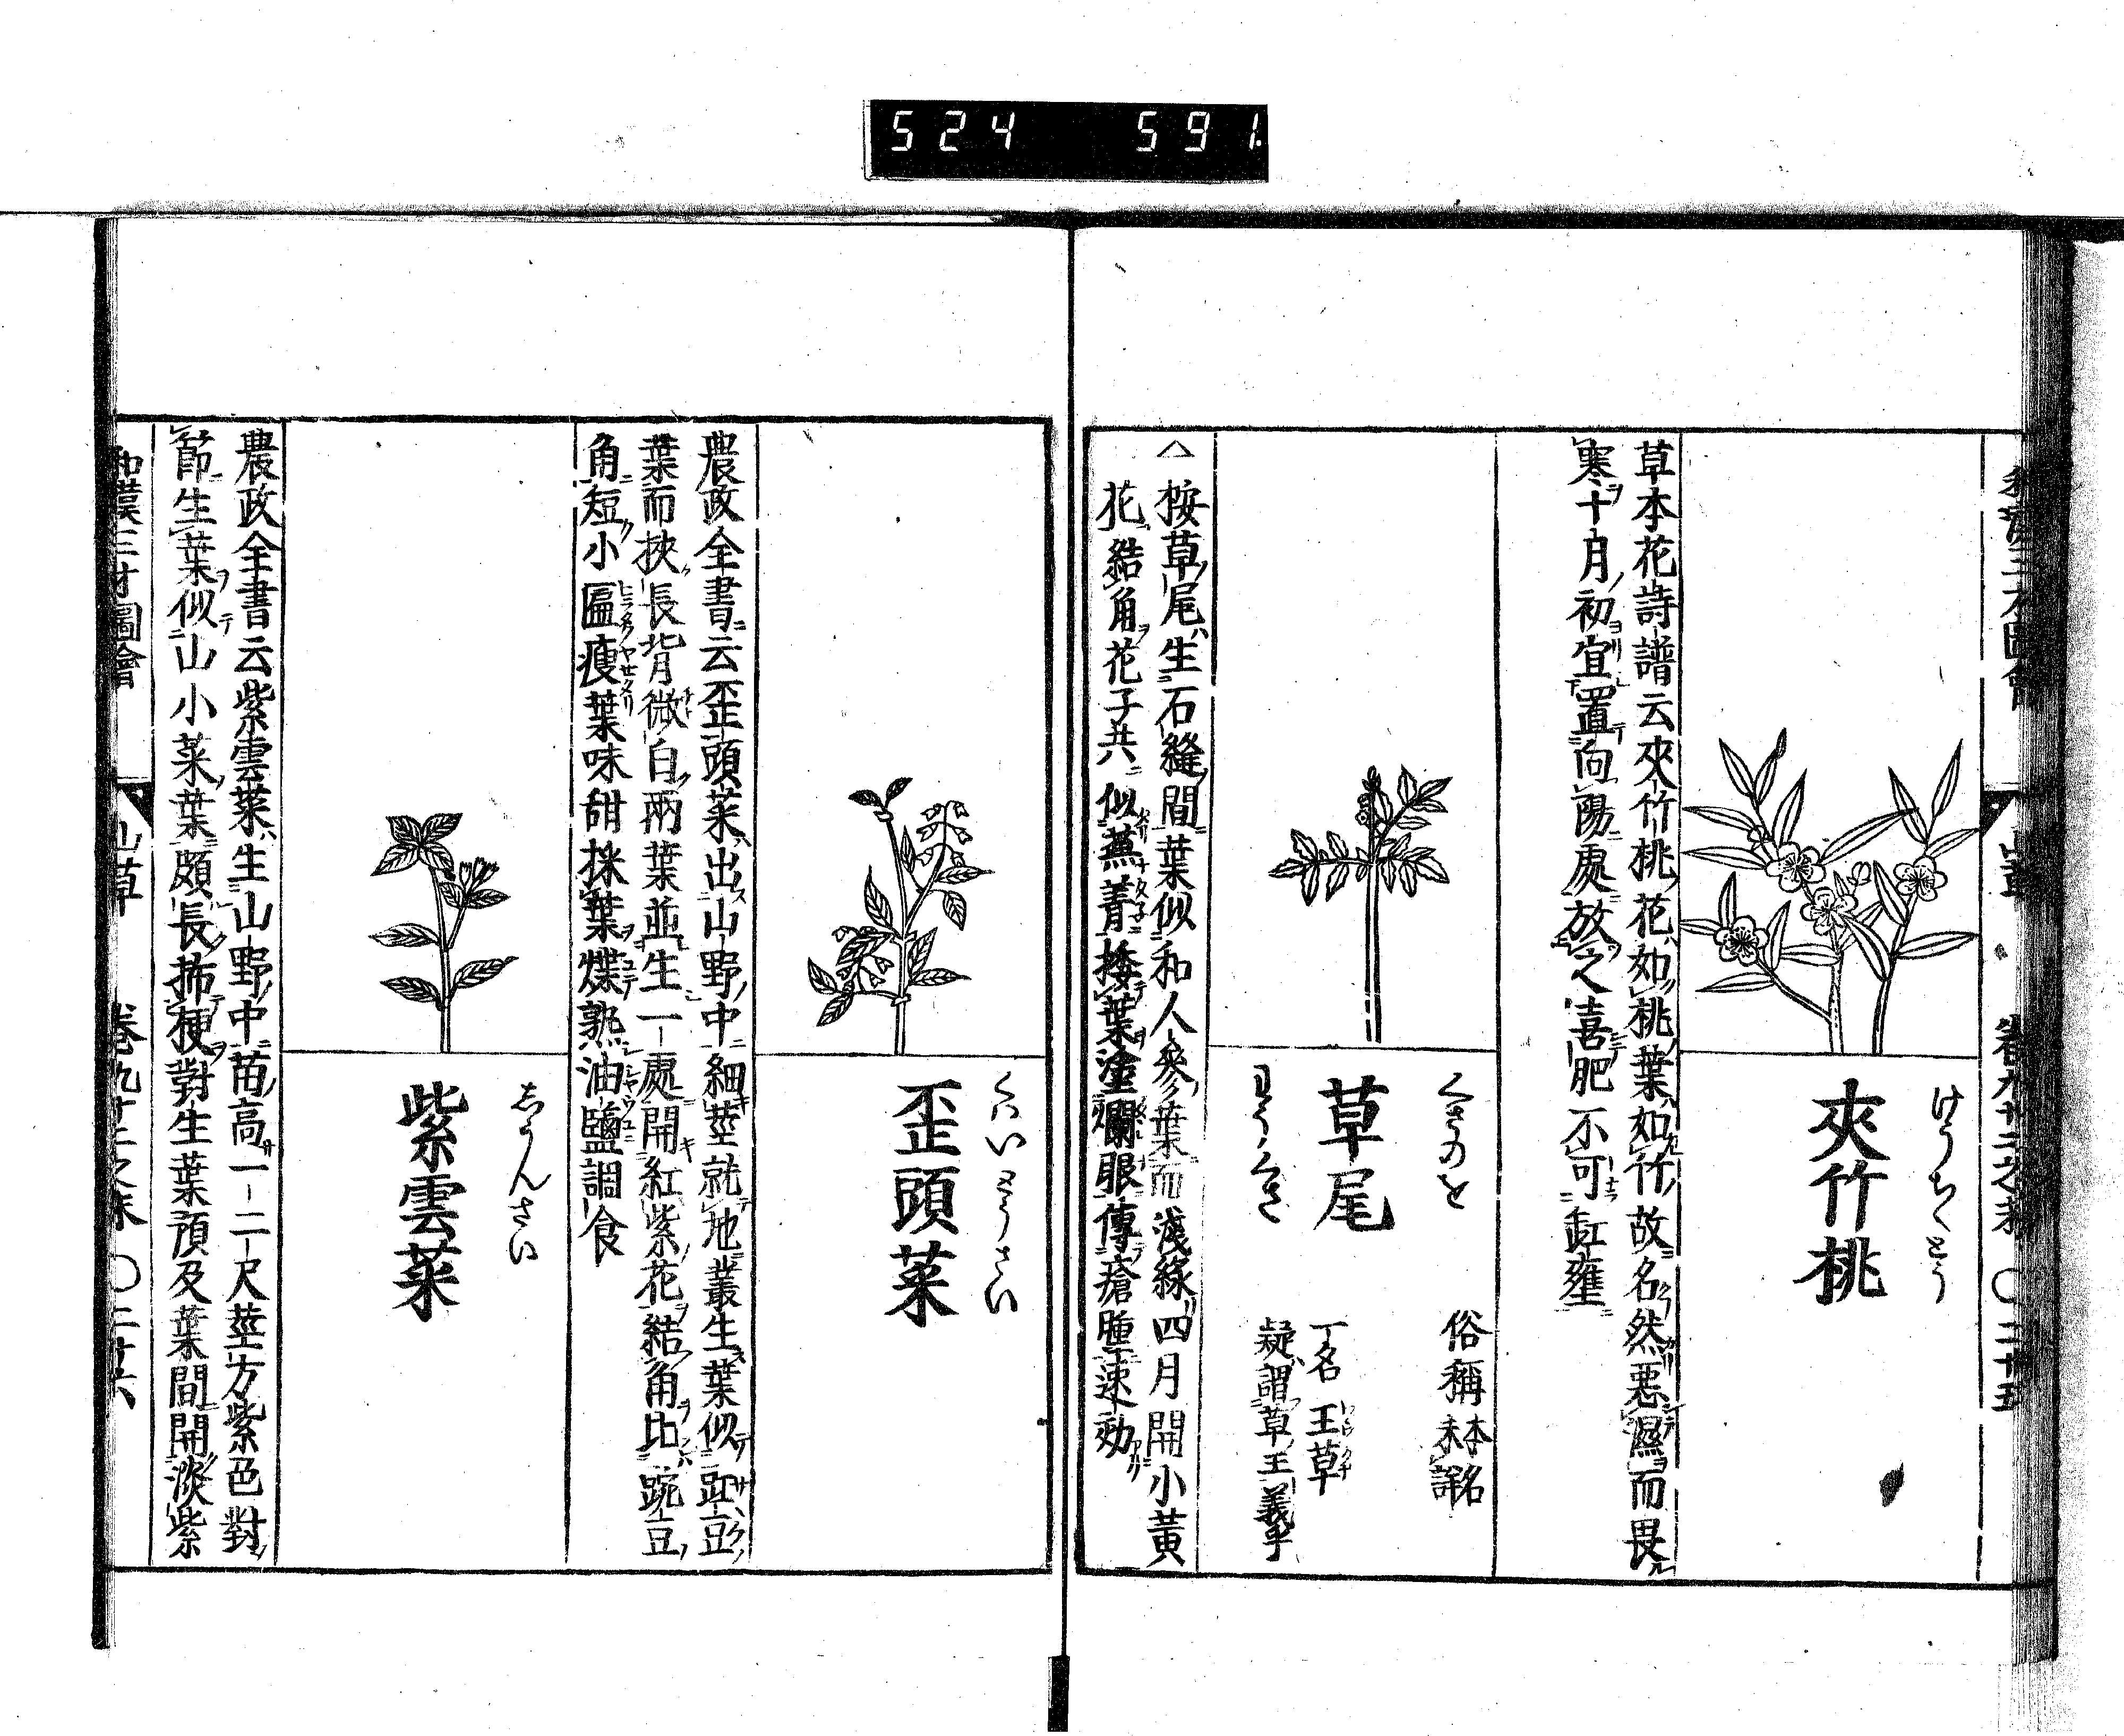 524 591.
和漢三才圖會 山草 卷九十二之末 〇二十五
けうちくとう
夾竹桃
草本花詩譜云夾竹桃花如桃葉如竹故名然惡濕而畏
寒十月初宜置向陽處放之喜肥不可缸壅
くさのを
草尾
わうくさ
俗稱本名未詳
一名王草
疑謂草王義乎
△按草尾生石縫間葉似和人參葉而淺綠四月開小黃
花結角花子共似蕪菁挼葉塗爛眼傳瘡腫速効
くはいとうさい
歪頭菜
農政全書云歪頭菜出山野中細莖就地叢生葉似豇豆
葉而挾長背微白兩葉並生一處開紅紫花結角比豌豆
角短小匾瘦葉味甜採葉煠熟油鹽調食
しうんさい
紫雲菜
農政全書云紫雲菜生山野中苗高一二尺莖方紫色對
節生葉似山小菜葉頗長㧊梗對生葉頂及葉間開淡紫
和漢三才圖會 山草 卷九十二之末 〇二十六